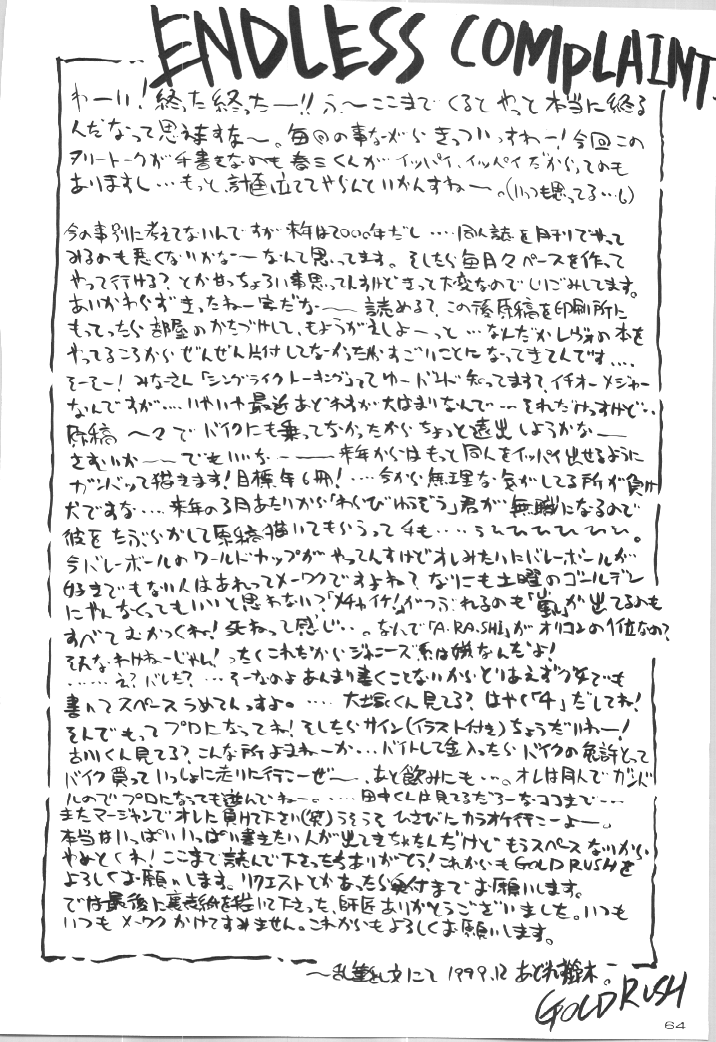 ENDLESS COMPLAINT
わーい!終った終ったー!!う〜ここまでくるとやっと本当に終る
んだなって思いますな〜。毎回の事ながらきっついっすわー!今回この
フリートークが手書きなのも春ミくんがイッパイ、イッパイだからってのも
ありますし…もっと計画立ててやらんといかんすねー。(いつも思ってる…し)
今の事別に考えてないんですが来年は2000年だし‥‥同人誌を月刊でやって
みるのも悪くないかなーなんて思ってます。そしたら毎月々ペースを作って
やって行ける?とかせっちょろい事思ってんすけどきって大変なのでしりごみしてます。
あいかわらずきったねー字だな〜 読める?この後原稿を印刷所に
もってったら部屋のかたづけして、もようがえしよーっと…なんだかレヴォの本を
やってるころからぜんぜん片付してなかったからすごいことになってきてんです‥‥
そーそー!みなさん「シングライクトーキング」ってゆーバンド知ってますて、イチオーメジャー
なんですが‥‥いやいや最近あどれすが大はまりなんで…それだけっすけど‥
原稿 〜々でバイクにも乗ってなかったからちょっと遠出しようかな—
さむいか——でもいいな—— 来年からはもっと同人をイッパイ出せるように
ガンバって描きます!目標年6冊!‥‥今から無理な気がしてる所が負け
犬ですな‥‥来年の3月あたりから「わらびゆうぞう」君が無職になるので
彼をたぶらかして原稿描いてもらうって手も…うひひひひひひ。
今バレーボールのワールドカップがやってんすけどオレみたいにバレーボールが
好きでもない人はあれってメーワクですよね?なにも土曜のゴールデン
にやんなくってもいいと思わない?「メチャイケ!」がつぶれるのも「嵐」が出てるのも
すべてむかつくね!死ねって感じ‥。なんで「A.RA.SHI」がオリコンの1位なの?
そんなわけねーじゃん!ったくこれだからジャニーズ系は嫌なんだよ!
……え?バレた?…そーなのよあんまり書くことないからとりあえず文でも
書いてスペースうめてんっすよ。‥‥大塚くん見てる?はやく「4」だしてね!
そんでもってプロになってね!そしたらサイン(イラスト付き)ちょうだいねー!
古川くん見てる?こんな所よまねーか…バイトして金入ったらバイクの免許とって
バイク買っていっしょに走りに行こーぜ〜、あと飲みにも…。オレは同人でガンバ
ルのでプロになっても遊んでねー。‥‥田中くんは見てるだろーなココまで…
またマージャンでオレに負けて下さい(笑)うそうそひさびにカラオケ行こーよー。
本当はいっぱいいっぱい書きたい人が出てきちゃたんだけどもうスペースないから
やめとくね!ここまで読んで下さった方ありがとう!これからもGOLD RUSHを
よろしくお願いします。リクエストとかあったら奥付までお願いします。
では最後に裏表紙を描いて下さった、師匠ありがとうございました。いつも
いつもメーワクかけてすみません。これからもよろしくお願いします。
〜乱筆乱文にて 1999.12 あどれす鈴木。
GOLD RUSH
64